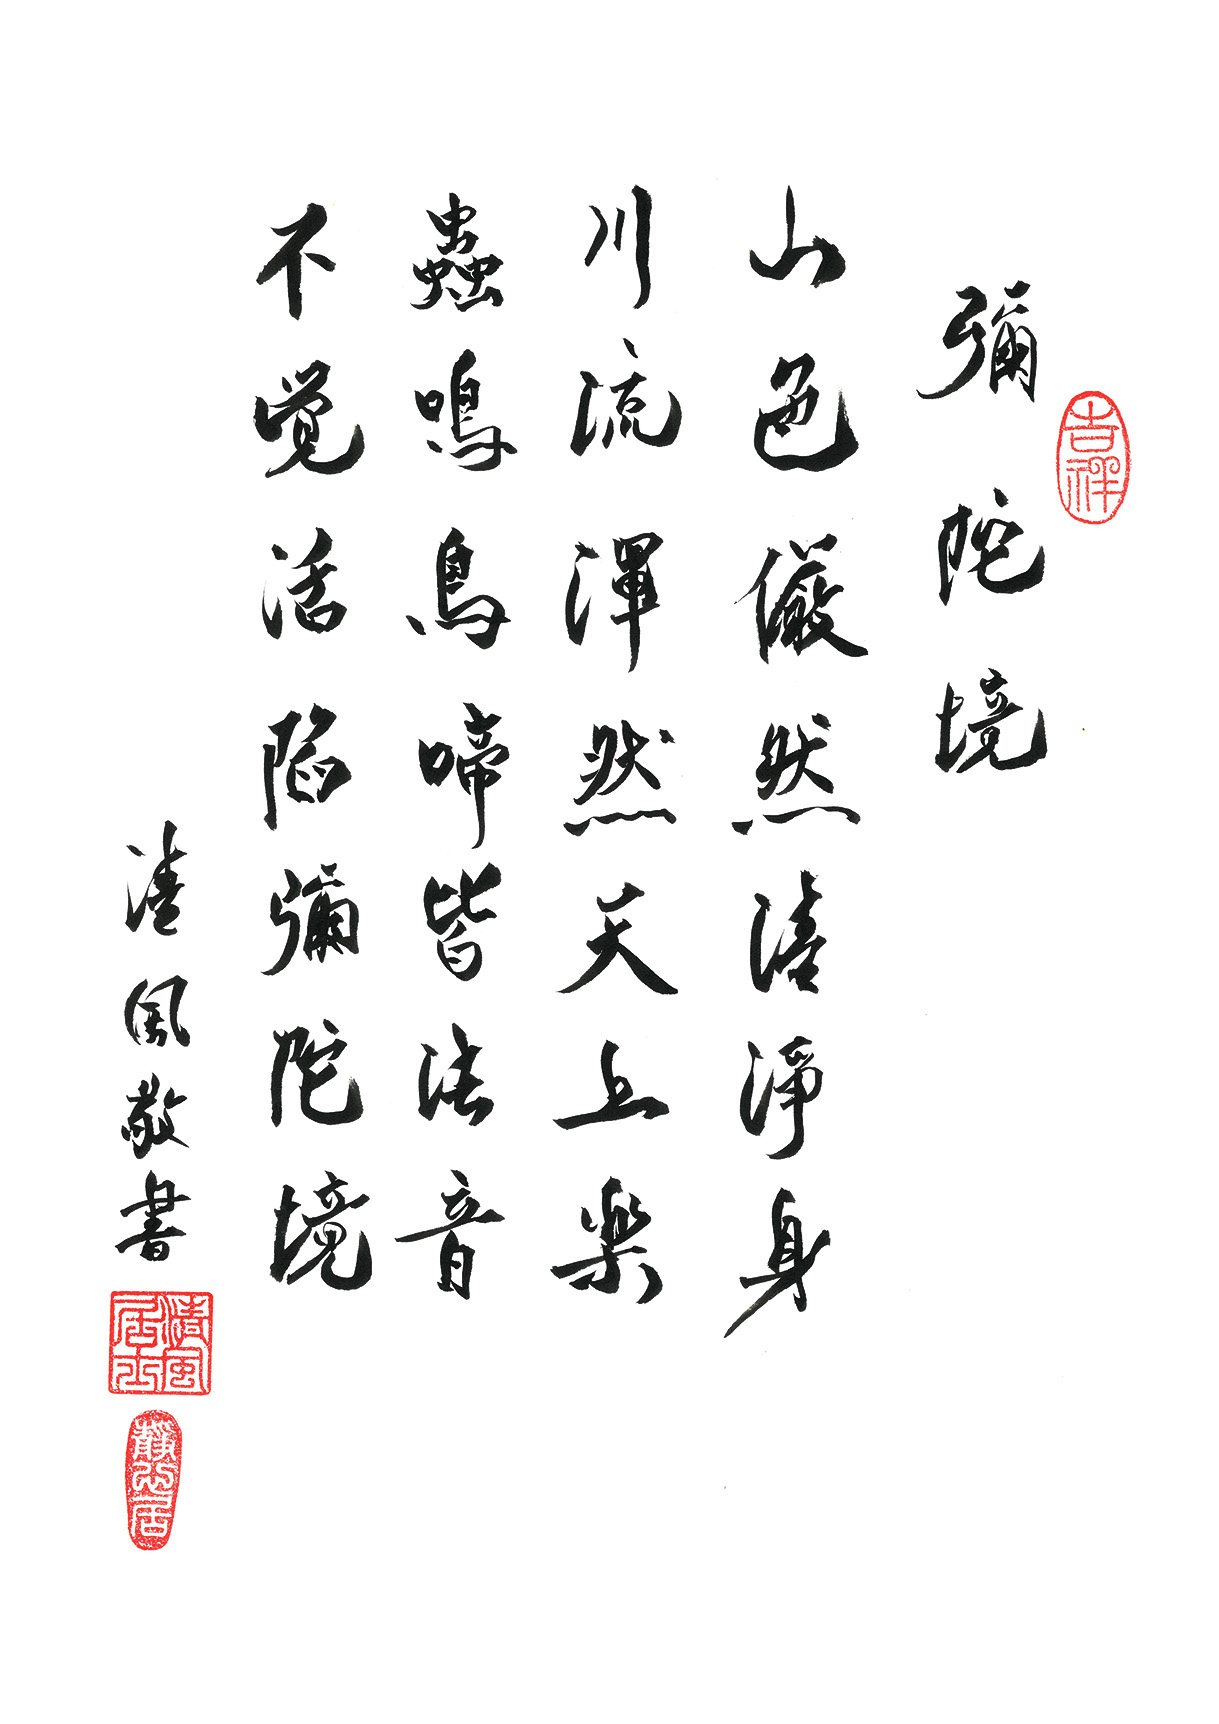 彌陀境
吉祥
山色儼然清淨身
川流渾然天上樂
蟲鳴鳥啼皆法音
不覚活陷彌陀境
清風敬書
清風居士
居